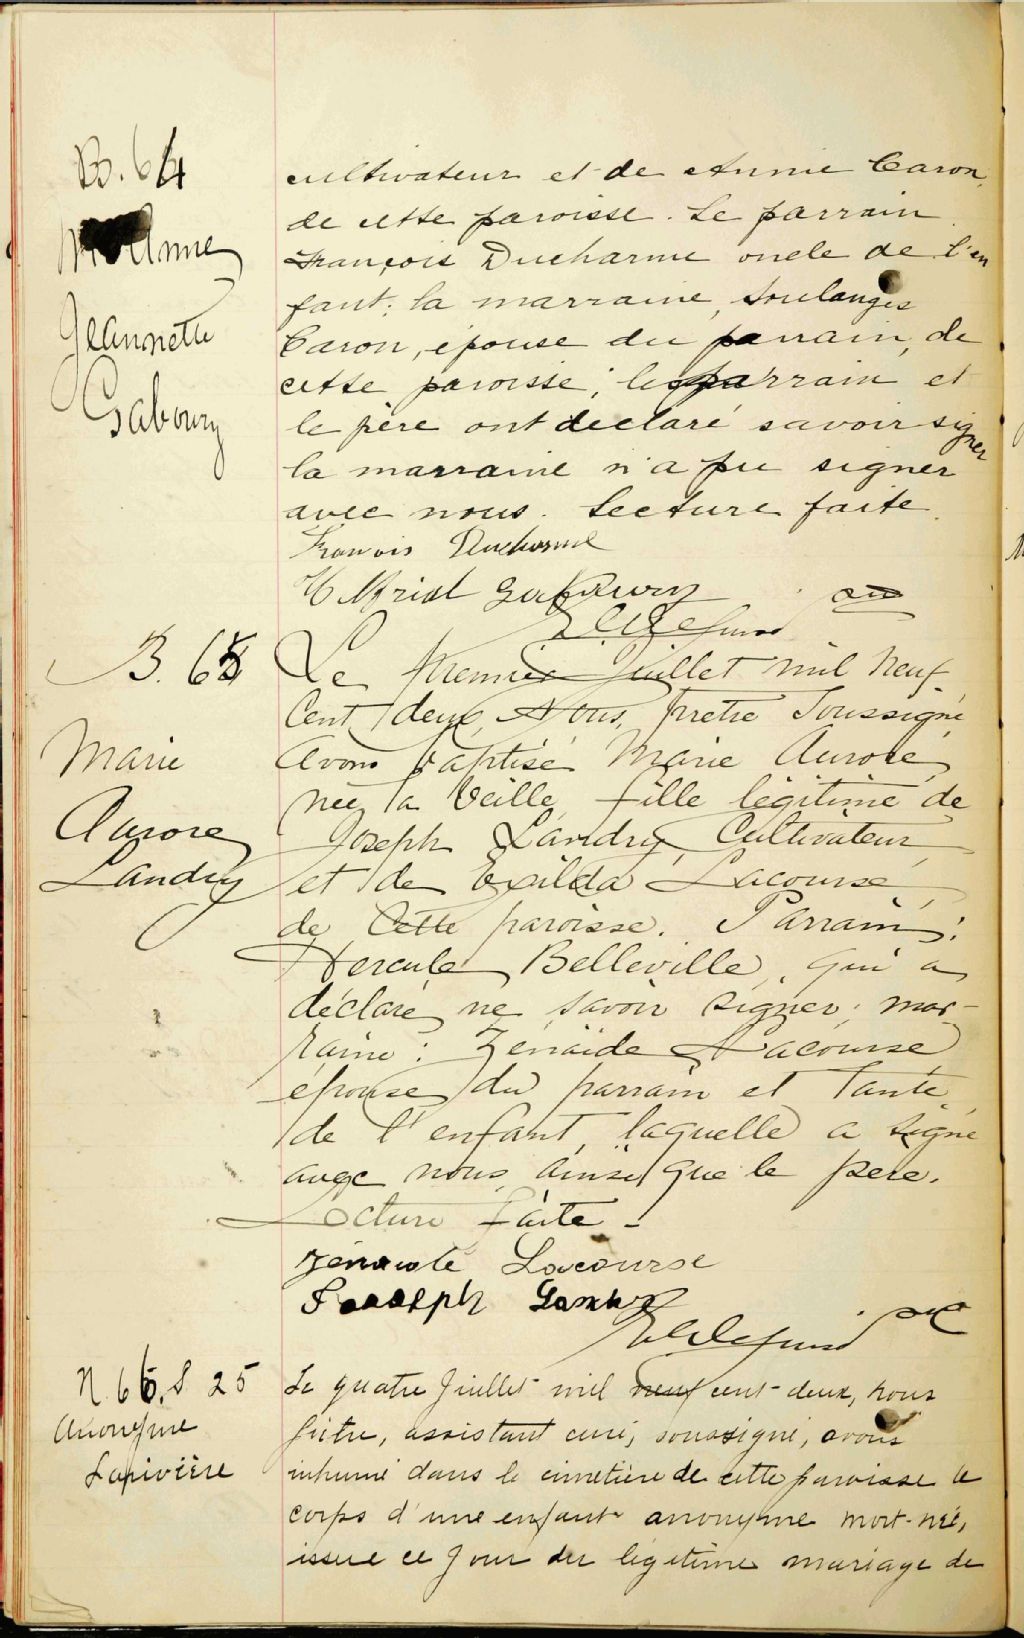 B. 64
Anne
Jeannette
Gaboury
cultivateur et de Annie Caron,
de cette paroisse. Le parrain
François Ducharme oncle de l'en
fant; la marraine, Soulanges
Caron, épouse du parrain, de
cette paroisse; le parrain et
le père ont déclaré savoir signer
la marraine n'a pu signer
avec nous. Lecture faite.
François Ducharme
Gaboury
B. 65
Marie
Aurore
Landry
Le premier Juillet mil neuf
Cent deux, Nous, Prêtre Soussigné
Avons baptisé Marie Aurore
née la Veille, fille légitime de
Joseph Landry, Cultivateur
et de Exilda Lacourse
de Cette paroisse. Parrain:
Hercule Belleville, qui a
déclaré ne savoir signer; mar-
raine: Zénaïde Lacourse
épouse du parrain et Tante
de l'enfant, laquelle a signé
avec nous, ainsi que le père.
Lecture faite -
Lacourse
Joseph Landry
N. 66. S 25
Anonyme
Larivière
Le quatre Juillet mil neuf cent-deux, nous
Prêtre, assistant curé, soussigné, avons
inhumé dans le cimetière de cette paroisse le
corps d'une enfant anonyme mort-née,
issue ce jour du légitime mariage de